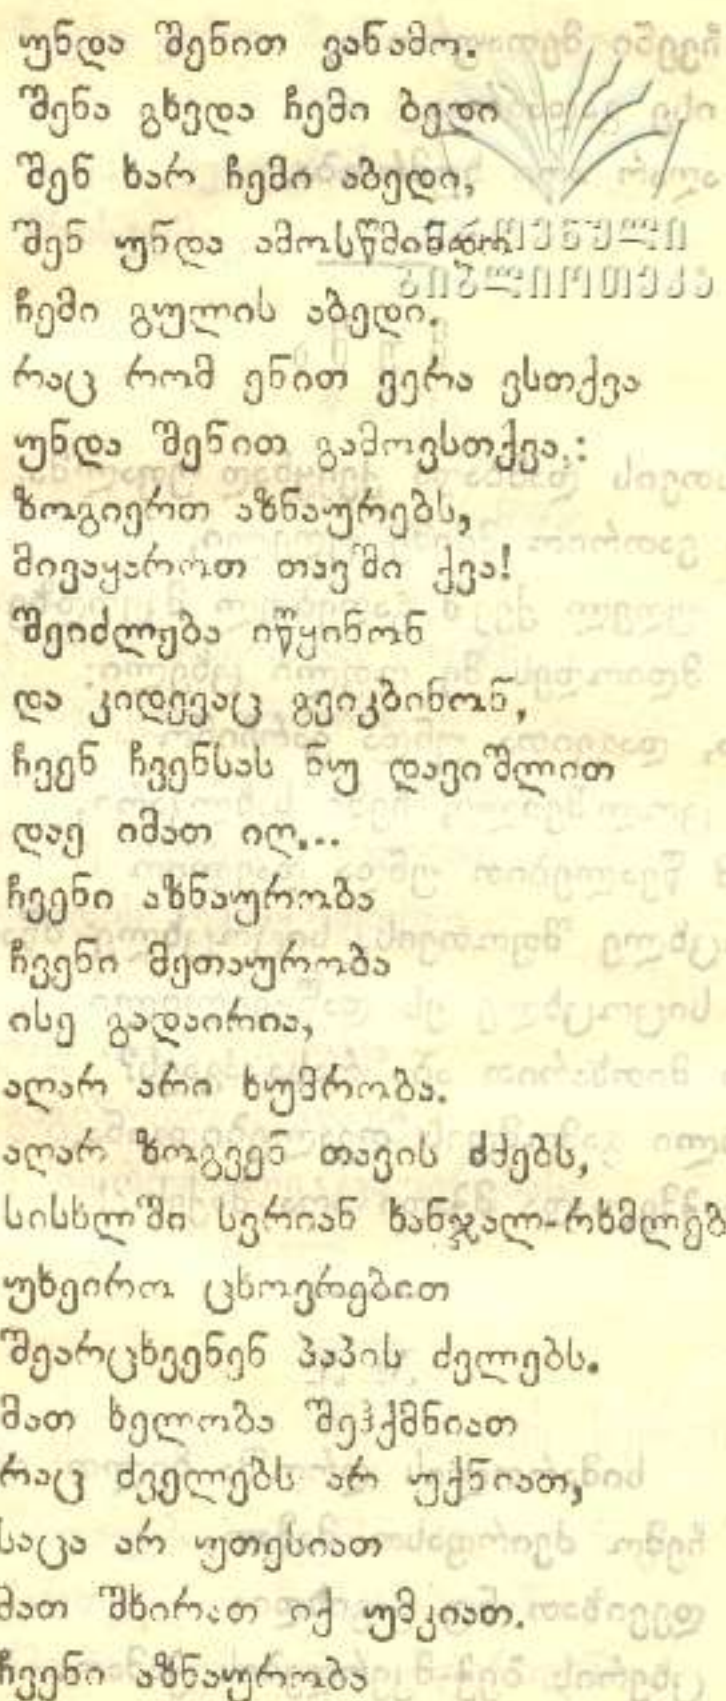 უნდა შენით ვანამო.
შენა გხვდა ჩემი ბედი
შენ ხარ ჩემი აბედი,
შენ უნდა ამოსწმინდო
ეროვნული
ბიბლიოთეკა
ჩემი გულის აბედი.
რაც რომ ენით ვერა ვსთქვა
უნდა შენით გამოვსთქვა:
ზოგიერთ აზნაურებს,
მივაყაროთ თავში ქვა!
შეიძლება იწყინონ
და კიდევაც გვიკბინონ,
ჩვენ ჩვენსას ნუ დავიშლით
დაე იმათ იღ...
ჩვენი აზნაურობა
ჩვენი მეთაურობა
ისე გადაირია,
აღარ არი ხუმრობა.
აღარ ზოგვენ თავის ძმებს,
სისხლში სვრიან ხანჯალ-რხმლებ
უხეირო ცხოვრებით
შეარცხვენენ პაპის ძვლებს.
მათ ხელობა შეჰქმნიათ
რაც ძველებს არ უქნიათ,
საცა არ უთესიათ
მათ შხირათ იქ უმკიათ.
ჩვენი აზნაურობა